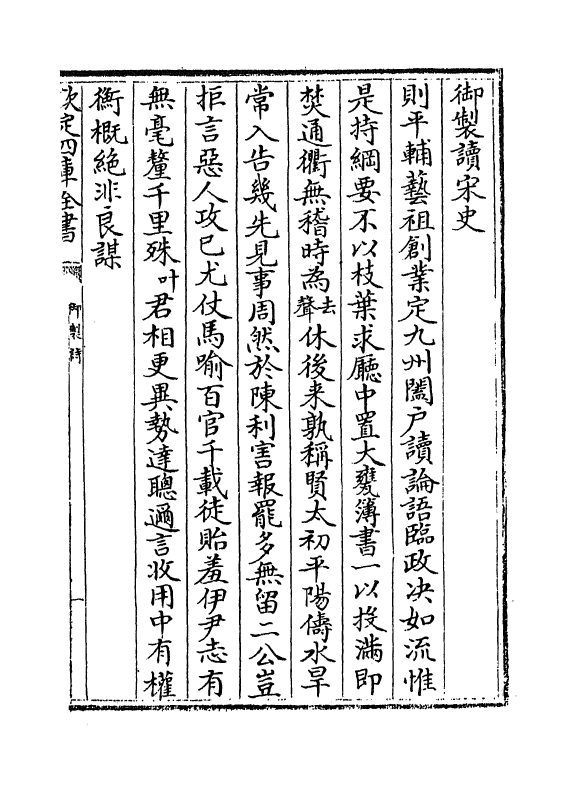 御製讀宋史
則平輔藝祖創業定九州闔户讀論語臨政决如流惟
是持綱要不以枝葉求廳中置大甕簿書一以投滿即
焚通衢無稽時為去聲休後来孰稱賢太初平陽儔水旱
常入告幾先見事周然於陳利害報罷多無留二公豈
拒言惡人攻已尤仗馬喻百官千載徒貽羞伊尹志有
無毫釐千里殊叶君相更異勢達聰邇言收用中有權
衡概絶非良謀
欽定四庫全書
御製詩
一